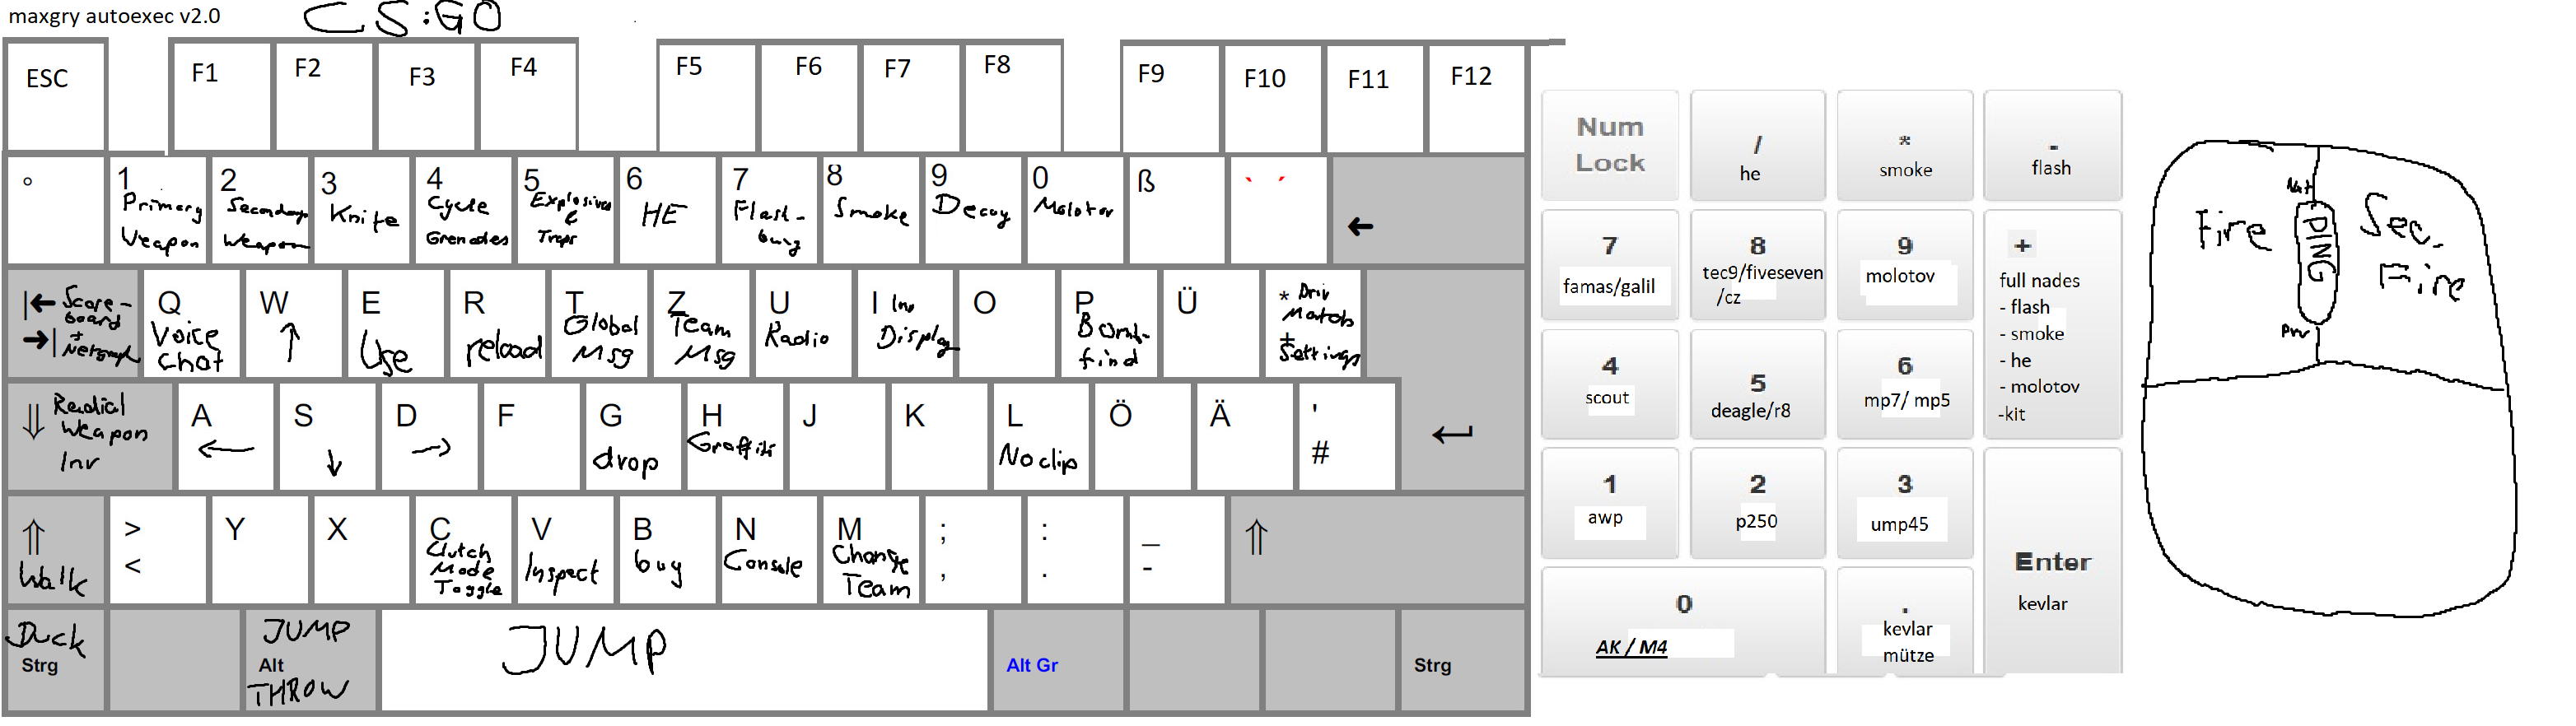 maxgry autoexec v2.0
CS:GO
ESC
F1
F2
F3
F4
F5
F6
F7
F8
F9
F10
F11
F12
°
1
Primary
Weapon
2
Secondary
Weapon
3
Knife
4
Cycle
Grenades
5
Explosives
&
Traps
6
HE
7
Flash-
bang
8
Smoke
9
Decoy
0
Molotov
ß
` ´
←
|← Score-
board
+
→| Netgraph
Q
Voice
Chat
W
↑
E
Use
R
reload
T
Global
Msg
Z
Team
Msg
U
Radio
I Inv
Display
O
P
Bomb-
find
Ü
*
Match
+
Settings
⇓ Radial
Weapon
Inv
A
←
S
↓
D
→
F
G
drop
H
Graffiti
J
K
L
Noclip
Ö
Ä
'
#
↵
⇑
Walk
>
<
Y
X
C
Clutch
Mode
Toggle
V
Inspect
B
buy
N
Console
M
Change
Team
;
,
:
.
_
-
⇑
Duck
Strg
JUMP
Alt
THROW
JUMP
Alt Gr
Strg
Num
Lock
/
he
*
smoke
-
flash
7
famas/galil
8
tec9/fiveseven
/cz
9
molotov
+
full nades
- flash
- smoke
- he
- molotov
-kit
4
scout
5
deagle/r8
6
mp7/ mp5
1
awp
2
p250
3
ump45
Enter
kevlar
0
AK / M4
.
kevlar
mütze
Fire
PING
Sec.
Fire